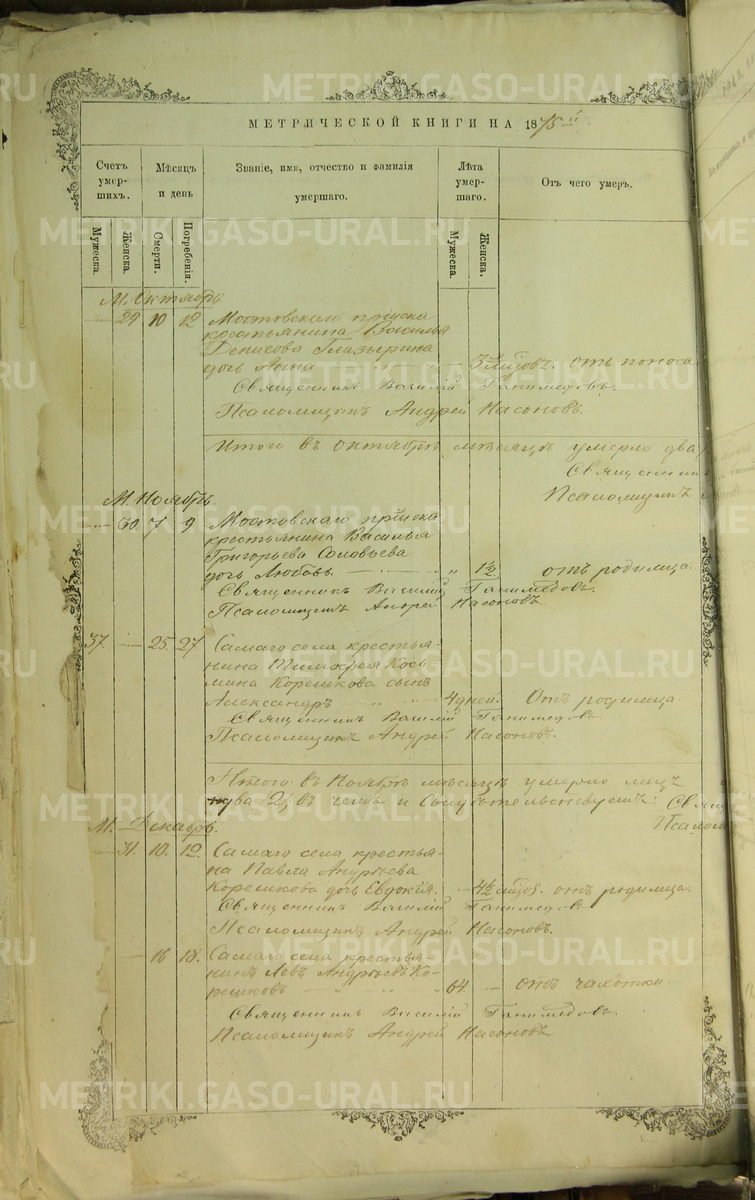 МЕТРИЧЕСКОЙ КНИГИ НА 1875 й
Счетъ умер-шихъ.
Мѣсяцъ и день
Званіе, имя, отчество и фамилія умершаго.
Лѣта умер-шаго.
Отъ чего умеръ.
Мужеска.
Женска.
Смерти.
Погребенія.
Мужеска.
Женска.
М. Октябрь.
29 10 12 Мостовскаго пріиска
крестьянина Василья
Денисова Глазырина
дочь Анна 3 мѣсцовъ. отъ поноса
Священникъ Василій Ганимедовъ.
Псаломщикъ Андрей Насоновъ.
Итого въ октябрѣ мѣсяцѣ умерло два
Священникъ
Псаломщикъ
М. Ноябрь.
30. 7 9 Мостовскаго пріиска
крестьянина Василья
Григорьева Соловьева
дочь Любовь. " 1½ отъ родимца.
Священникъ Василій Ганимедовъ.
Псаломщикъ Андрей Насоновъ.
37. 25. 27. Самаго села крестья-
нина Тимофея Кось-
мина Корешкова сынъ
Александръ 4 дней. Отъ родимца.
Священникъ Василій Ганимедовъ
Псаломщикъ Андрей Насоновъ.
Итого въ Ноябрѣ мѣсяцѣ умерло лицъ
два /2/, въ чемъ и свидѣтельствуемъ: Свящ
Псалом
М. Декабрь.
31. 10. 12. Самаго села крестья-
на Павла Андреева
Корешкова дочь Евдокія. 4½ мѣсяц. отъ родимца.
Священникъ Василій Ганимедовъ
Псаломщикъ Андрей Насоновъ.
16 18. Самаго села крестья-
нинъ Левъ Андреевъ Ко-
решковъ 64 отъ чахотки.
Священникъ Василій Ганимедовъ.
Псаломщикъ Андрей Насоновъ
METRIKI.GASO-URAL.RU